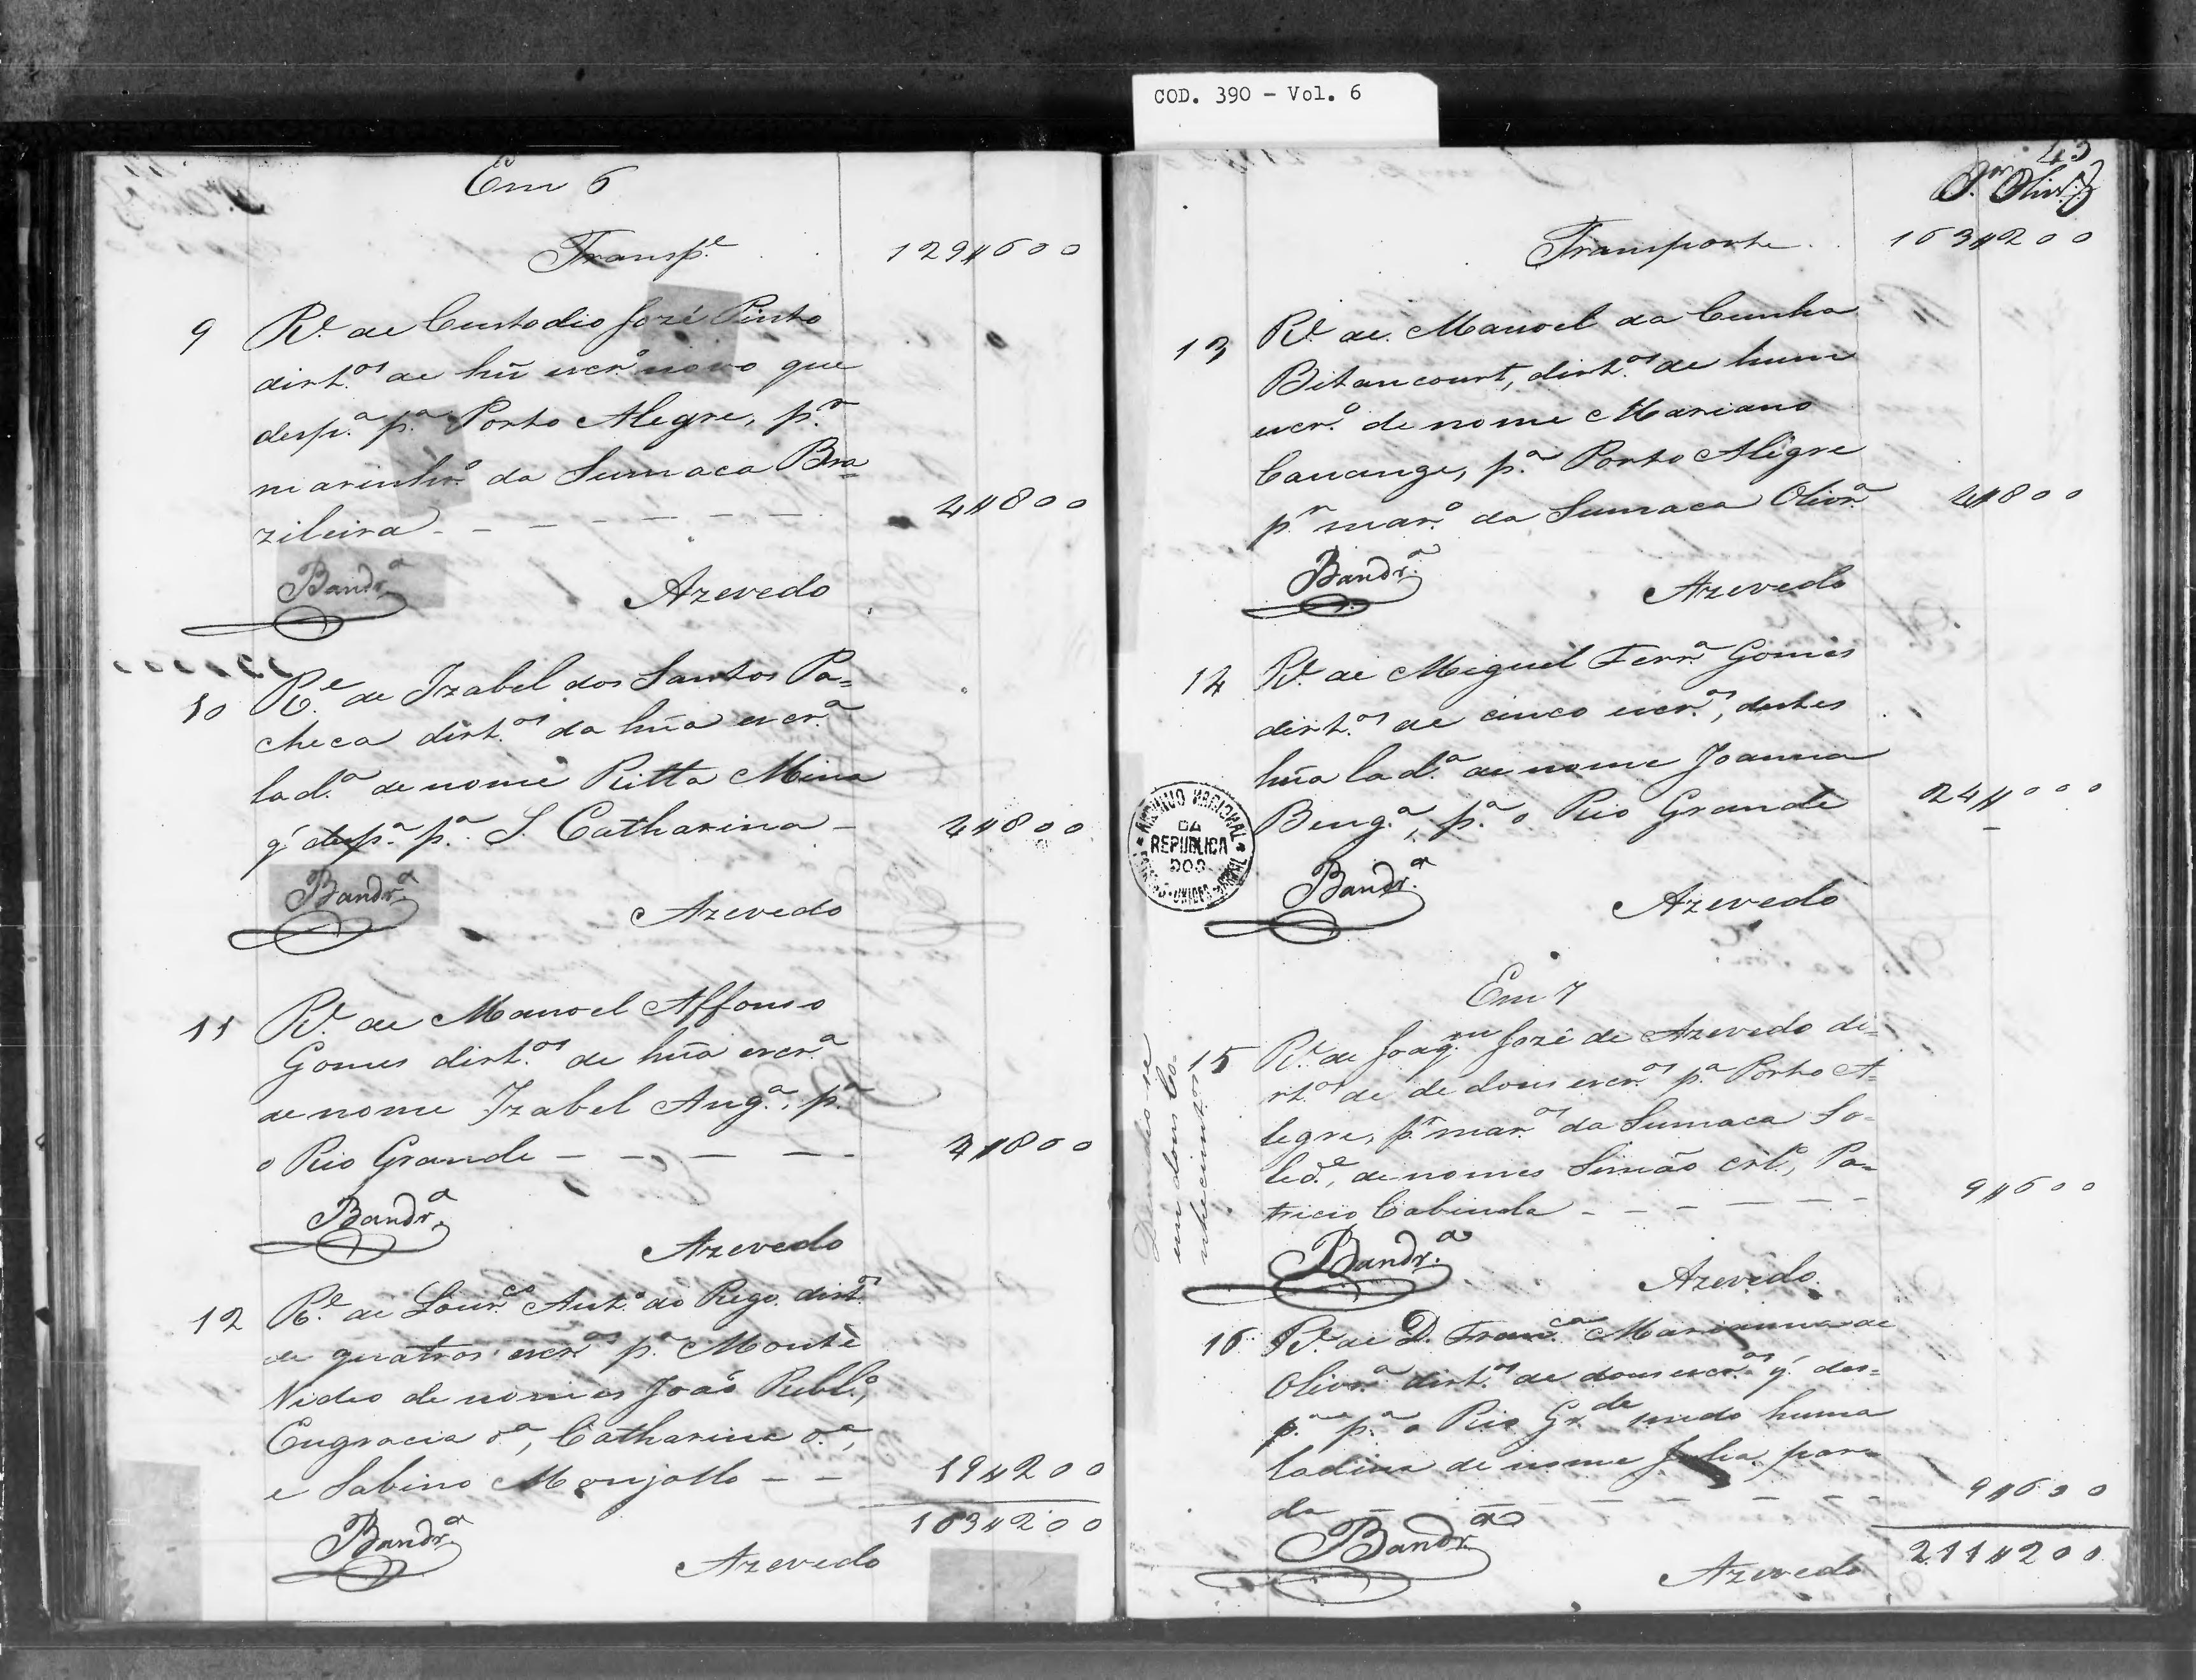 COD. 390 - Vol. 6
Em 6
Transp.e 129#600
9 R.e de Custodio José Pinto
dirt.os de hũ escr.o novo que
desp.a p.a Porto Alegre, p.r
marinhr.o da Sumaca Bra=
zileira - - - - - - 4#800
Bandr.a Azevedo
10 R.e de Izabel dos Santos Pa=
checa dirt.os da hũa escr.a
lad.a de nome Ritta Mina
q' desp.a p.a S. Catharina - 4#800
Bandr.a Azevedo
11 R.e de Manoel Affonso
Gomes dirt.os de hũa escr.a
de nome Izabel Ang.a, p.a
o Rio Grande - - - - - 4#800
Bandr.a Azevedo
12 R.e de Lour.co Ant.o do Rego dirt.os
de quatros escr.os p.a Monte
Video de nomes João Rebl.o,
Engracia d.a, Catharina d.a,
e Sabino Monjollo - - 19#200
163#200
Bandr.a Azevedo
43
Transporte 163#200
13 R.e de Manoel da Cunha
Bitancourt, dirt.os de hum
escr.o de nome Mariano
Caçange, p.a Porto Alegre
p.r mar.o da Sumaca Olivr.a 4#800
Bandr.a Azevedo
14 R.e de Miguel Ferr.a Gomes
dirt.os de cinco escr.os, destes
hũa lad.a de nome Joanna
Beng.a, p.a o Rio Grande 24#000
Bandr.a Azevedo
ARQUIVO NACIONAL
DA
REPUBLICA
DOS
Em 7
15 R.e de Joaq.m José de Azevedo di=
rt.os de de dous escr.os p.a Porto A=
legre, p.r mar.os da Sumaca So=
led.e, de nomes Simão cr.lo, Pa=
tricio Cabinda - - - - - - 9#600
Dando-se
um dous Co-
nhecimentos
Bandr.a Azevedo
16 R.e de D. Fran.ca Marianna de
Olivr.a dirt.os de dous escr.os q' des=
p.a p.a o Rio Gr.de sendo huma
ladina de nome Julia par=
da - - - - - - 9#600
211#200
Bandr.a Azevedo